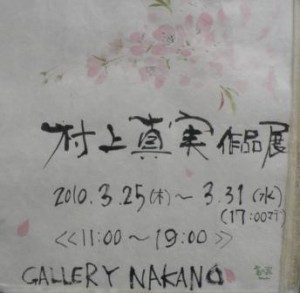 村上真実作品展
2010.3.25(木)～3.31(水)
(17:00マデ)
<<11:00～19:00>>
GALLERY NAKANO